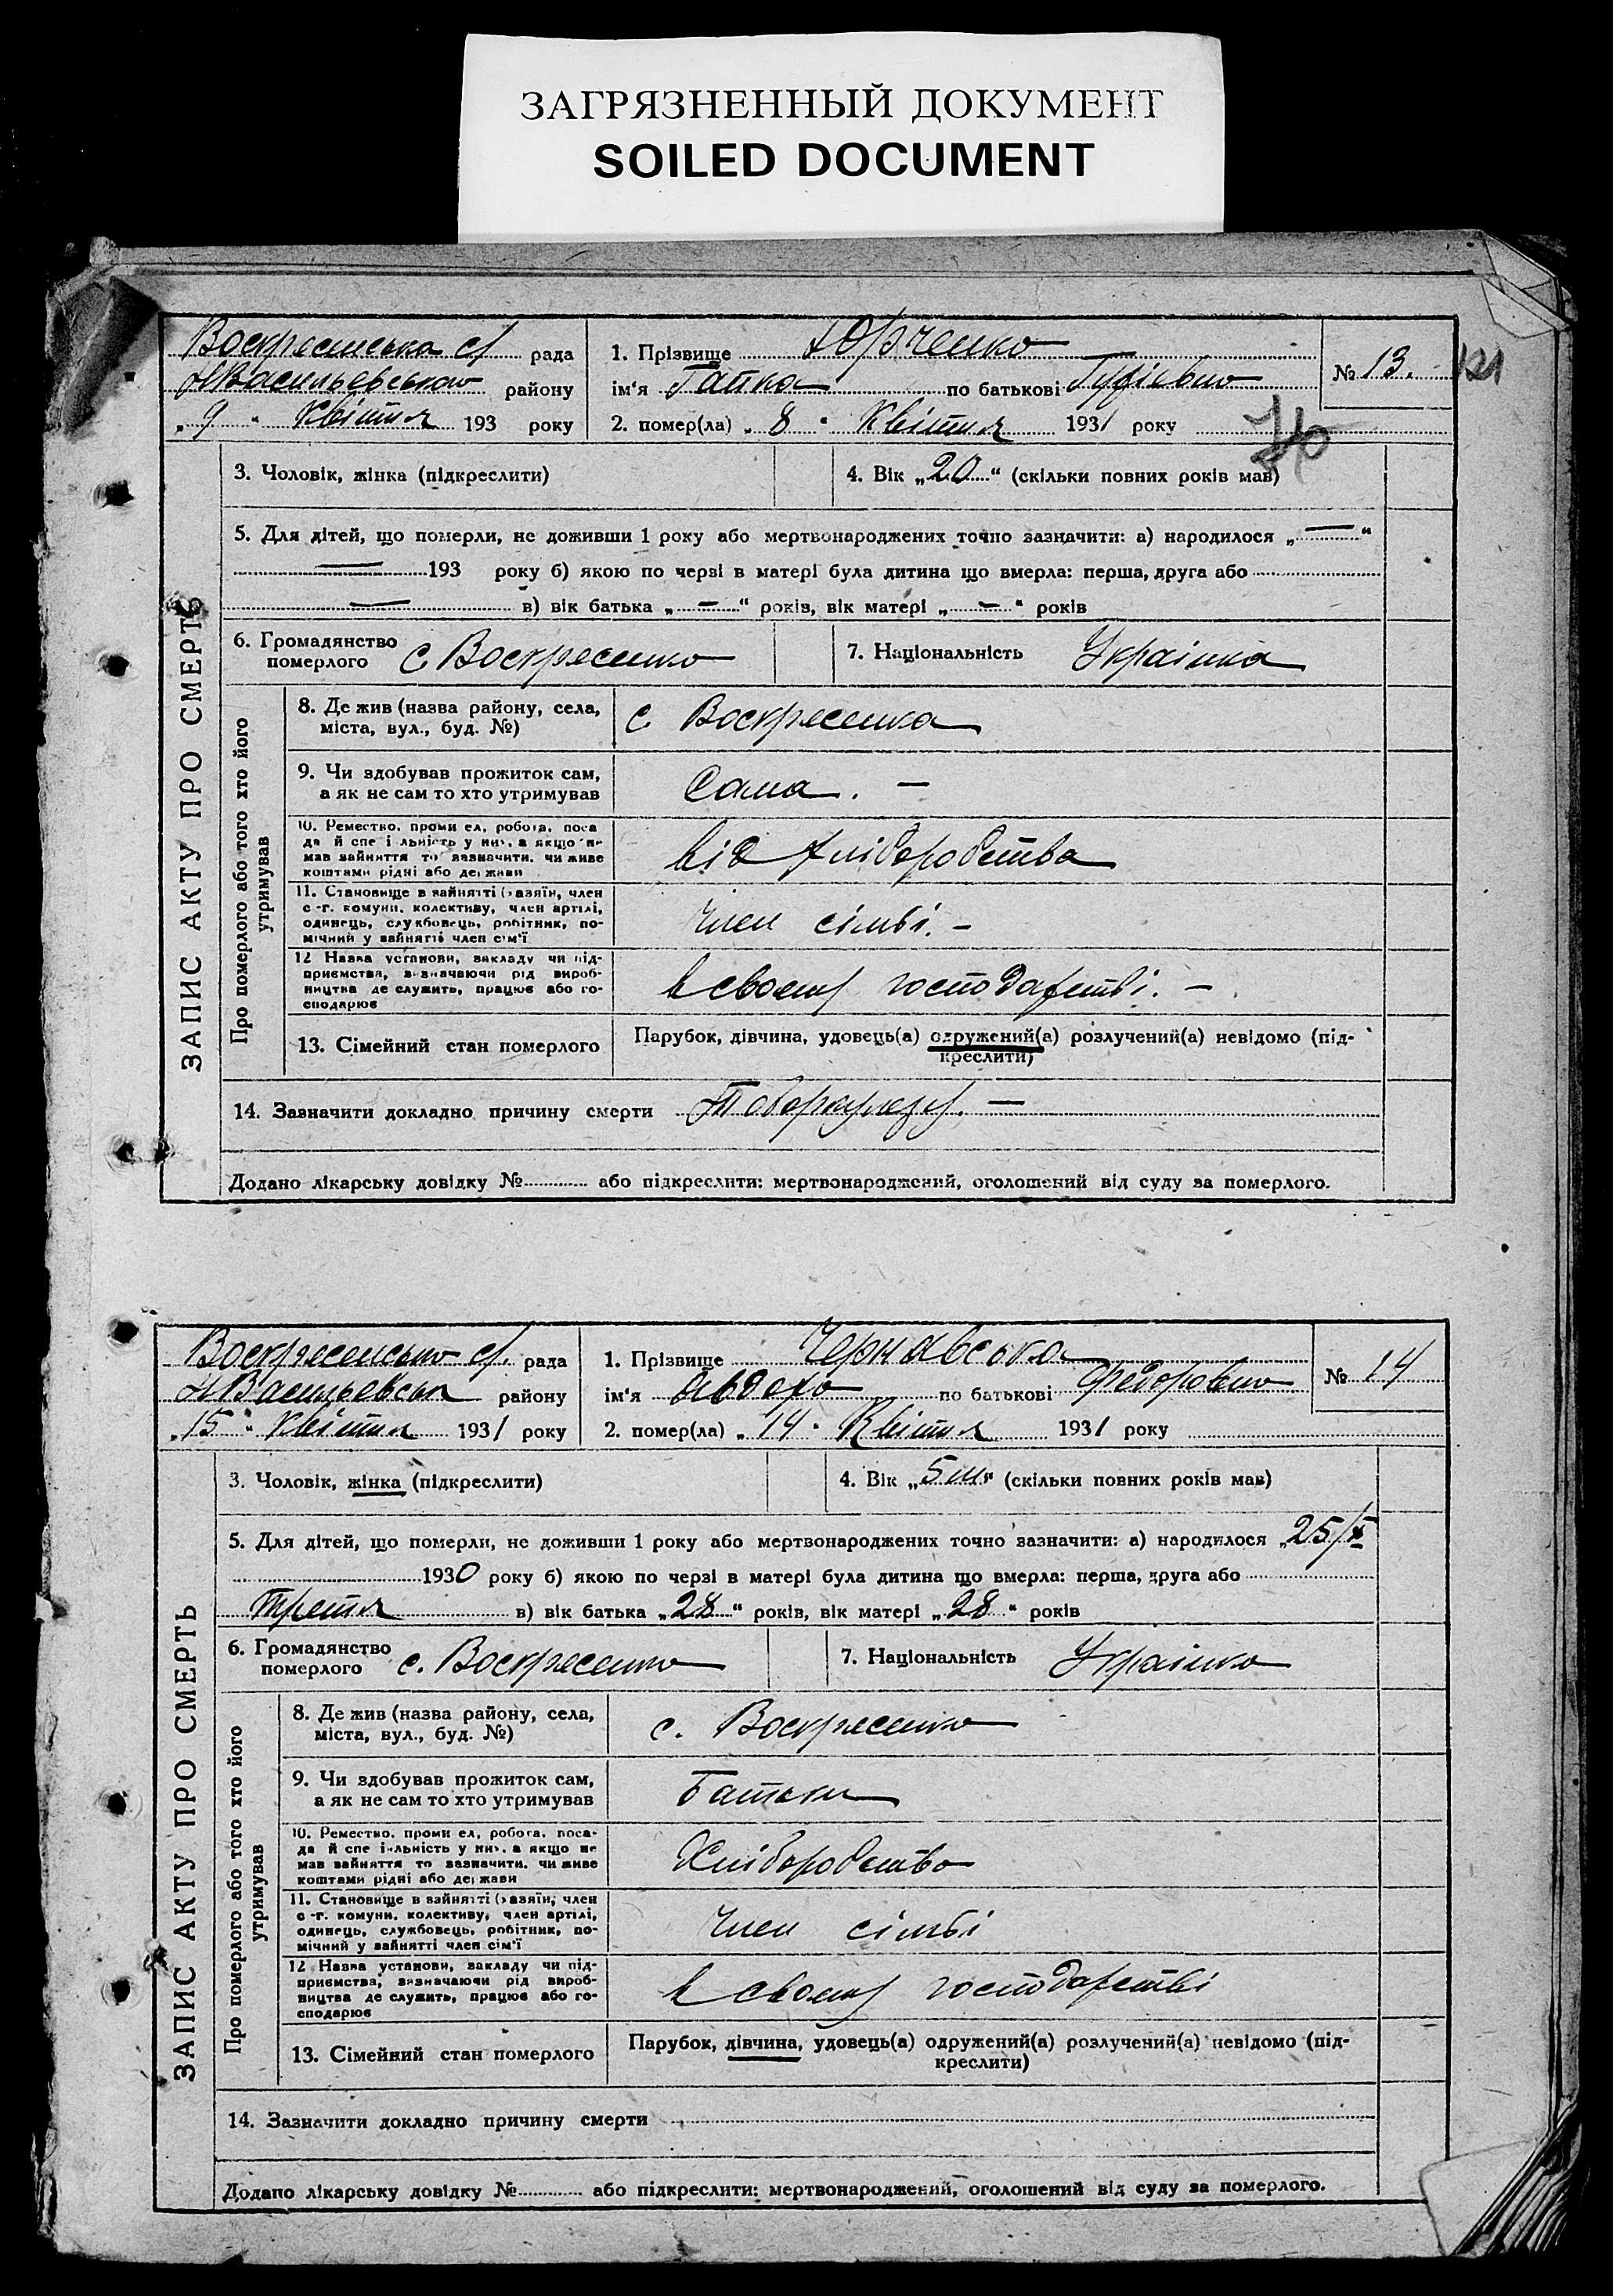 ЗАГРЯЗНЕННЫЙ ДОКУМЕНТ
SOILED DOCUMENT
ЗАПИС АКТУ ПРО СМЕРТЬ
рада
району
„ 9 " Квітня 193 року
1. Прізвище Юрченко
ім'я Гапка по батькові
2. помер(ла) „ 8 " Квітня 1931 року
№ 13.
121
3. Чоловік, жінка (підкреслити)
4. Вік „20" (скільки повних років мав)
5. Для дітей, що померли, не доживши 1 року або мертвонароджених точно зазначити: а) народилося „—"
— 193 року б) якою по черзі в матері була дитина що вмерла: перша, друга або
— в) вік батька „—" років, вік матері „—" років
6. Громадянство
померлого с Воскресенка
7. Національність Українка
Про померлого або того хто його
утримував
8. Де жив (назва району, села,
міста, вул., буд. №)
с Воскресенка
9. Чи здобував прожиток сам,
а як не сам то хто утримував
Сама. —
10. Ремество, проми ел, робота, поса
да й спе і льність у них, а якщо не
мав зайняття то зазначити, чи живе
коштами рідні або держави
від хліборобства
11. Становище в зайнятті (хазяїн, член
с-г. комуни, колективу, член артілі,
одинець, службовець, робітник, по-
мічний у зайнятті член сім'ї
член сімьі. —
12 Назва установи, закладу чи під-
приємства, визначаючи рід вироб-
ництва де служить, працює або го-
сподарює
в своему господарстві. —
13. Сімейний стан померлого
Парубок, дівчина, удовець(а) одружений(а) розлучений(а) невідомо (під-
креслити)
14. Зазначити докладно причину смерти
Додано лікарську довідку № або підкреслити: мертвонароджений, оголошений від суду за померлого.
ЗАПИС АКТУ ПРО СМЕРТЬ
рада
району
„15" Квітня 1931 року
1. Прізвище Чернявська
ім'я по батькові Федоровна
2. помер(ла) „ 14 " Квітня 1931 року
№ 14
3. Чоловік, жінка (підкреслити)
4. Вік „5 м" (скільки повних років мав)
5. Для дітей, що померли, не доживши 1 року або мертвонароджених точно зазначити: а) народилося „25/X
1930 року б) якою по черзі в матері була дитина що вмерла: перша, друга або
третя в) вік батька „28" років, вік матері „28" років
6. Громадянство
померлого с. Воскресенка
7. Національність Українка
Про померлого або того хто його
утримував
8. Де жив (назва району, села,
міста, вул., буд. №)
с. Воскресенка
9. Чи здобував прожиток сам,
а як не сам то хто утримував
Батьки
10. Ремество, проми ел, робота, поса-
да й спе і льність у них, а якщо не
мав зайняття то зазначити, чи живе
коштами рідні або держави
Хліборобство
11. Становище в зайнятті (хазяїн, член
с-г. комуни, колективу, член артілі,
одинець, службовець, робітник, по-
мічний у зайнятті член сім'ї
член сімьі
12 Назва установи, закладу чи під-
приємства, визначаючи рід вироб-
ництва де служить, працює або го-
сподарює
в своему господарстві
13. Сімейний стан померлого
Парубок, дівчина, удовець(а) одружений(а) розлучений(а) невідомо (під-
креслити)
14. Зазначити докладно причину смерти
Додано лікарську довідку № або підкреслити: мертвонароджений, оголошений від суду за померлого.